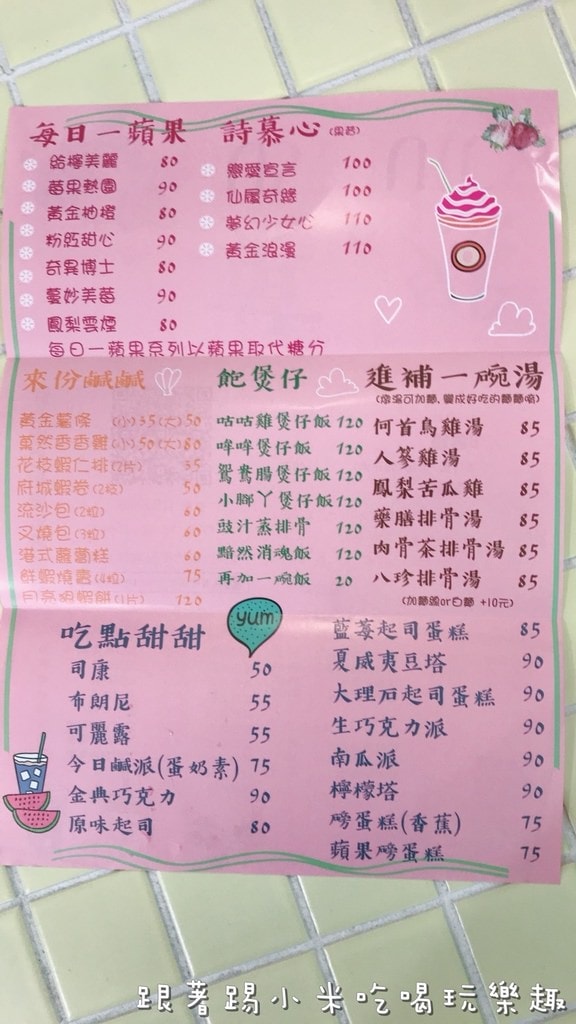 每日一蘋果
給檸美麗 80
莓果熱園 90
黃金柚橙 80
粉紅甜心 90
奇異博士 80
蔓妙芙莓 90
鳳梨雲煙 80
每日一蘋果系列以蘋果取代糖分
詩慕心(果昔)
戀愛宣言 100
仙履奇緣 100
夢幻少女心 110
黃金浪漫 110
來份鹹鹹
黃金薯條 (小)35(大)50
菓然香香雞(小)50(大)80
花枝蝦仁排(2片) 35
府城蝦卷(2枝) 50
流沙包(2粒) 60
叉燒包(3粒) 60
港式蘿蔔糕 60
鮮蝦燒賣(4粒) 75
月亮蝦蝦餅(1片) 120
飽煲仔
咕咕雞煲仔飯 120
哞哞煲仔飯 120
鴛鴦腸煲仔飯 120
小腳丫煲仔飯 120
豉汁蒸排骨 120
黯然消魂飯 120
再加一碗飯 20
進補一碗湯
何首烏雞湯 85
人蔘雞湯 85
鳳梨苦瓜雞 85
藥膳排骨湯 85
肉骨茶排骨湯 85
八珍排骨湯 85
(加麵線or白麵 +10元)
yum
吃點甜甜
司康 50
布朗尼 55
可麗露 55
今日鹹派(蛋奶素) 75
金典巧克力 90
原味起司 80
藍莓起司蛋糕 85
夏威夷豆塔 90
大理石起司蛋糕 90
生巧克力派 90
南瓜派 90
檸檬塔 90
磅蛋糕(香蕉) 75
蘋果磅蛋糕 75
跟著踢小米吃喝玩樂趣